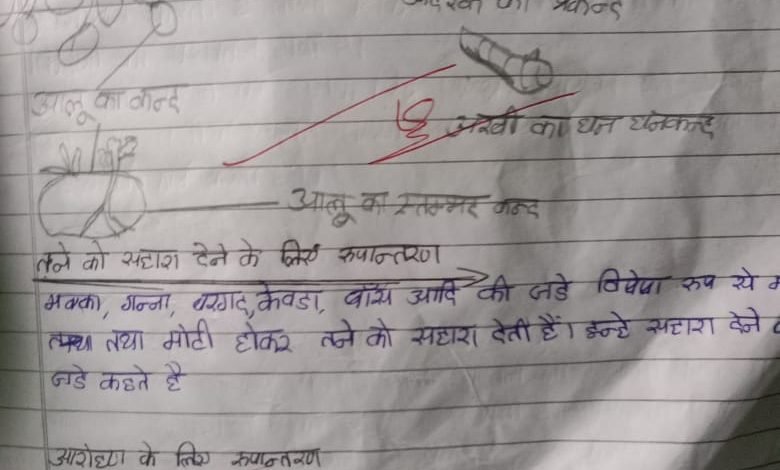 अदरक का प्रकन्द
आलू का कन्द
अरबी का घन घनकन्द
आलू का स्तम्भर कन्द
तने को सहारा देने के लिए रूपान्तरण
मक्का, गन्ना, बरगद, केवडा, बाँस आदि की जडे विषेषा रूप ये
तथा मोटी होकर तने को सहारा देती हैं। इन्हे सहारा देने
जडे कहते है
आरोहण के लिए रूपान्तरण